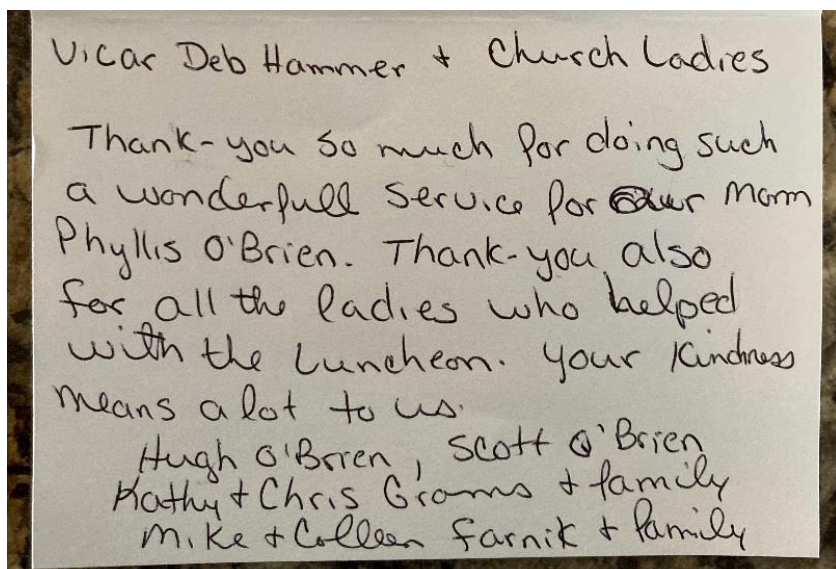 Vicar Deb Hammer + Church Ladies
Thank-you so much for doing such
a wonderfull service for our Mom
Phyllis O'Brien. Thank-you also
for all the ladies who helped
with the Luncheon. Your Kindness
means a lot to us.
Hugh O'Brien, Scott O'Brien
Kathy + Chris Grams + family
Mike + Colleen Farnik + family